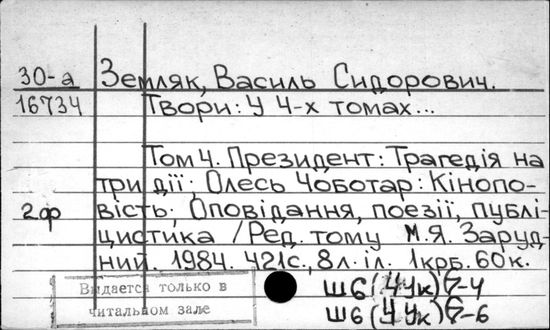 30-а Земляк, Василь Сидорович.
16734 Твори: У 4-х томах...
Том 4. Президент: Трагедія на
три дії; Олесь Чоботар: Кінопо-
2оф вість; Оповідання, поезії, публі-
цистика / Ред. тому М.Я. Заруд-
ний. 1984. 421с., 8л. іл. 1крб. 60к.
Выдается только в
читальном зале
Ш6(4Ук)
Ш6(4Ук)